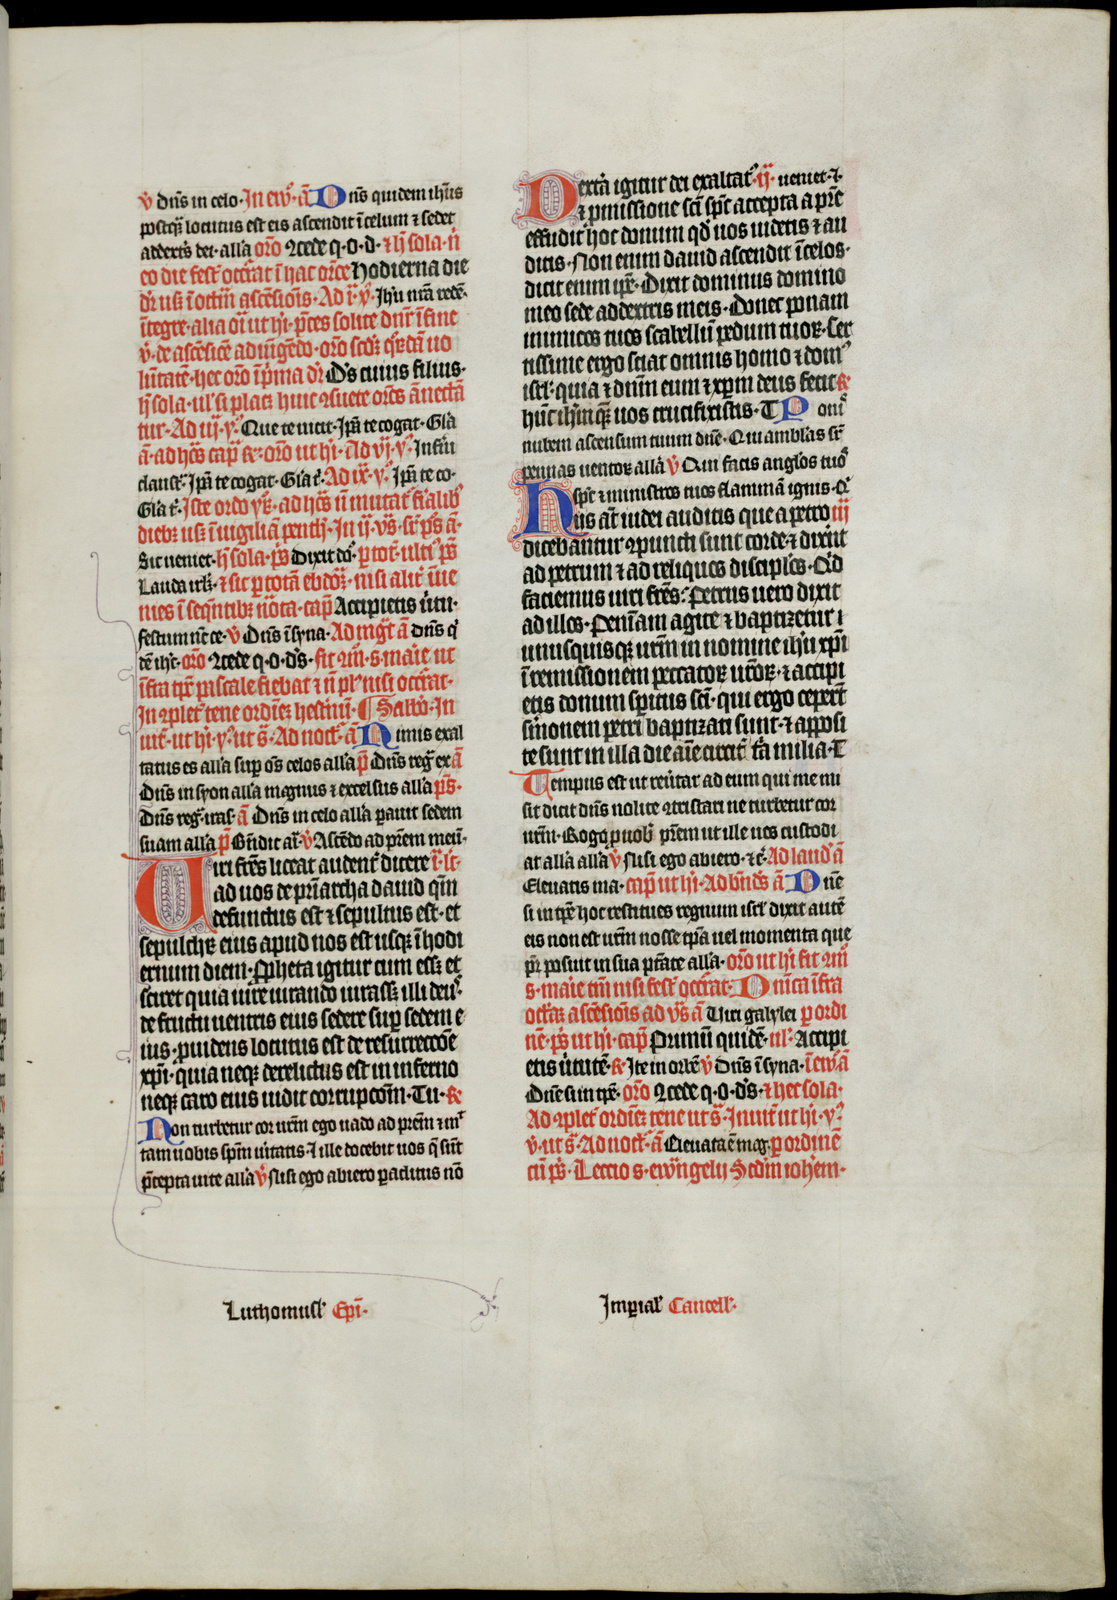 v̄ dn̄s in celo · In ew̄ · ā Dn̄s quidem ihūs
postqȝ locutus est eis ascendit ī celum ⁊ sedet
addextr̄s dei · all'a or̄o ꝯcede q · o · d · ⁊ h̄ sola · n̄
eo die fest' occ̄rat ī hac or̄ce Hodierna die
dr̄ usȝ ī octām ascēsiōis · Ad ī · v̄ · Jhū nrā rede ·
ītegre · alia oīa ut hī · p̄ces solite dn̄r ī fine
v̄ · de ascēsiōe adiūgēdo · or̄o scdȝ q̄rēdā uo
lūtatē · hec or̄o īp̄ma dr̄ D's cuius filius ·
h̄ sola · ul' si placȝ huic ꝯsuete or̄ces ānectā
tur · Ad iij · v̄ · Que te uicit · Ip̄a te cogat · Gl'a
ā · ad hōs cap̄ ꝶ · or̄o ut hī · Ad vj · v̄ · Infrā
claustr̄ · Ip̄a te cogat · Gl'a t' · Ad ix · v̄ · Ip̄a te co ·
Gl'a t' · Iste ordo v̄ꝶ · ad hōs nō mutat' fr̄ialibȝ
diebȝ usȝ ī uigiliā penth' · In ij · v̄s · sr̄ p̄s ā ·
Sic ueniet · h̄ sola · p̄s Dixit do' · p̄ tot' · ulti' p̄s
Lauda irl'ȝ · ⁊ sic p̄ totā ebdo'ȝ · nisi alit' īue
nies ī seq̄ntibȝ nōta · cap̄ Accipietis v̄tu ·
festum nc̄ ce · v̄ Dn̄s ī syna · Ad mḡt ā dn̄s q'
dē ih'c · or̄o ꝯcede q · o · d's · fit mī · s · maīe ut
īfra tp̄e pascale fiebat ⁊ n̄ pl' nisi occ̄rat ·
In ꝯplet' tene ordinēȝ hesternū · ¶ Sabbō · In
uit' · ut hī · v̄ · ut s̄ · Ad noct' · ā Nimis exal
tatus es all'a sup̄ oēs celos all'a p̄ Dn̄s reg̅ ex ā
Dn̄s in syon all'a magnus ⁊ excelsus all'a p̄s ·
Dn̄s reg̅ iras · ā Dn̄s in celo all'a parauit sedem
suam all'a p̄ Bn̄dic aī · v̄ Ascēdo ad prēm meū ·
Uiri fr̄es liceat audent' dicere ī · lc̄ ·
ad uos de pr̄iarcha dauid qm̄
defunctus est ⁊ sepultus est · et
sepulchrȝ eius apud nos est usqȝ ī hodi
ernum diem · Ppheta igitur cum essȝ et
sciret quia iure iurando iurassȝ illi deus ·
de fructu uentris eius sedere sup̄ sedem e
ius · puidens locutus est de resurreccōe
xp̄i · quia neqȝ derelictus est in inferno
neqȝ caro eius uidit corrupcōm · Tu · ꝶ
Non turbetur cor ur̄m ego uado ad prēm ⁊ mi'
tam uobis sp̄m ūitatis · I ille docebit uos q̄ sūt
p̄cepta uite all'a v̄ Nisi ego abiero p̄aclitus nō
Dextā igitur dei exaltat' · ij · ueniet · ⁊ ·
⁊ pmissione sc̄i sp̄c accepta a pr̄e
effudit hoc donum qd̄ uos uidetis ⁊ au
ditis · Non enim dauid ascendit ī celos ·
dicit enim ip̄e · Dixit dominus domino
meo sede addextris meis · Donec ponam
inimicos tuos scabellū pedum tuoꝝ · Cer
tissime ergo sciat omnis homo ⁊ dom'
isrl' · quia ⁊ dn̄m eum ⁊ xp̄m deus fecit ꝶ
hūc ihm̄ quē uos crucifixistis · T Poni'
nubem ascensum tuum dn̄e · Qui amblās sr̄
pennas uentoꝝ all'a v̄ Qui facis anglōs tuo'
sp̄c ⁊ ministros tuos flammā ignis · Q'
Hiis at̄ iudei auditis que a petro iij
dicebantur ꝯpuncti sunt corde ⁊ dixūt
ad petrum ⁊ ad reliquos discipl'os · Q'd
faciemus uiri fr̄es : Petrus uero dixit
ad illos · Penīam agite ⁊ baptizetur i
unusquisqȝ ur̄m in nomine ihū xp̄i
ī remissionem peccatoꝝ ur̄oꝝ · ⁊ accipi
etis donum spiritus sc̄i · qui ergo cepert̄
smonem petri baptizati sunt · ⁊ apposi
te sunt in illa die aīe circit' tīa milia · T
Tempus est ut reūtar ad eum qui me mi
sit dicit dn̄s nolite ꝯtristari ne turbetur cor
ur̄m · Rogo p uob' prēm ut ille uos custodi
at all'a all'a v̄ Nisi ego abiero · ⁊c̄ · Ad laud' ā
Eleuatis ma · cap̄ ut hī · Ad bn̄ds ā Dn̄e
si in tp̄e hoc restitues regnum isrl' dixit autē
eis non est ur̄m nosse tp̄a uel momenta que
pr̄ posuit in sua ptāte all'a · or̄o ut hī fit mī
s · maīe cm̄ nisi fest' occ̄rat · Dn̄ica īfra
octāȝ ascēsiōis ad v̄s ā Uiri galylei p ordi
nē · p̄s ut hī · cap̄ Primū quidē · ul' · Accipi
etis ūtutē · ꝶ Ite in orbē v̄ Dn̄s ī syna · ī ew̄ ā
Dn̄e si in tp̄e · or̄o ꝯcede q · o · d's · ⁊ hec sola ·
Ad ꝯplet' ordinēȝ tene ut s̄ · Inuit' ut hī · v̄ ·
v̄ · ut s̄ · Ad noct' · ā Eleuata ē mag̅ · p ordinē
cū p̄s · Leccio s · ewngelii Scdm iohem ·
Luthomusl' Ep̄i ·
Imp̄ial' Cancell' ·